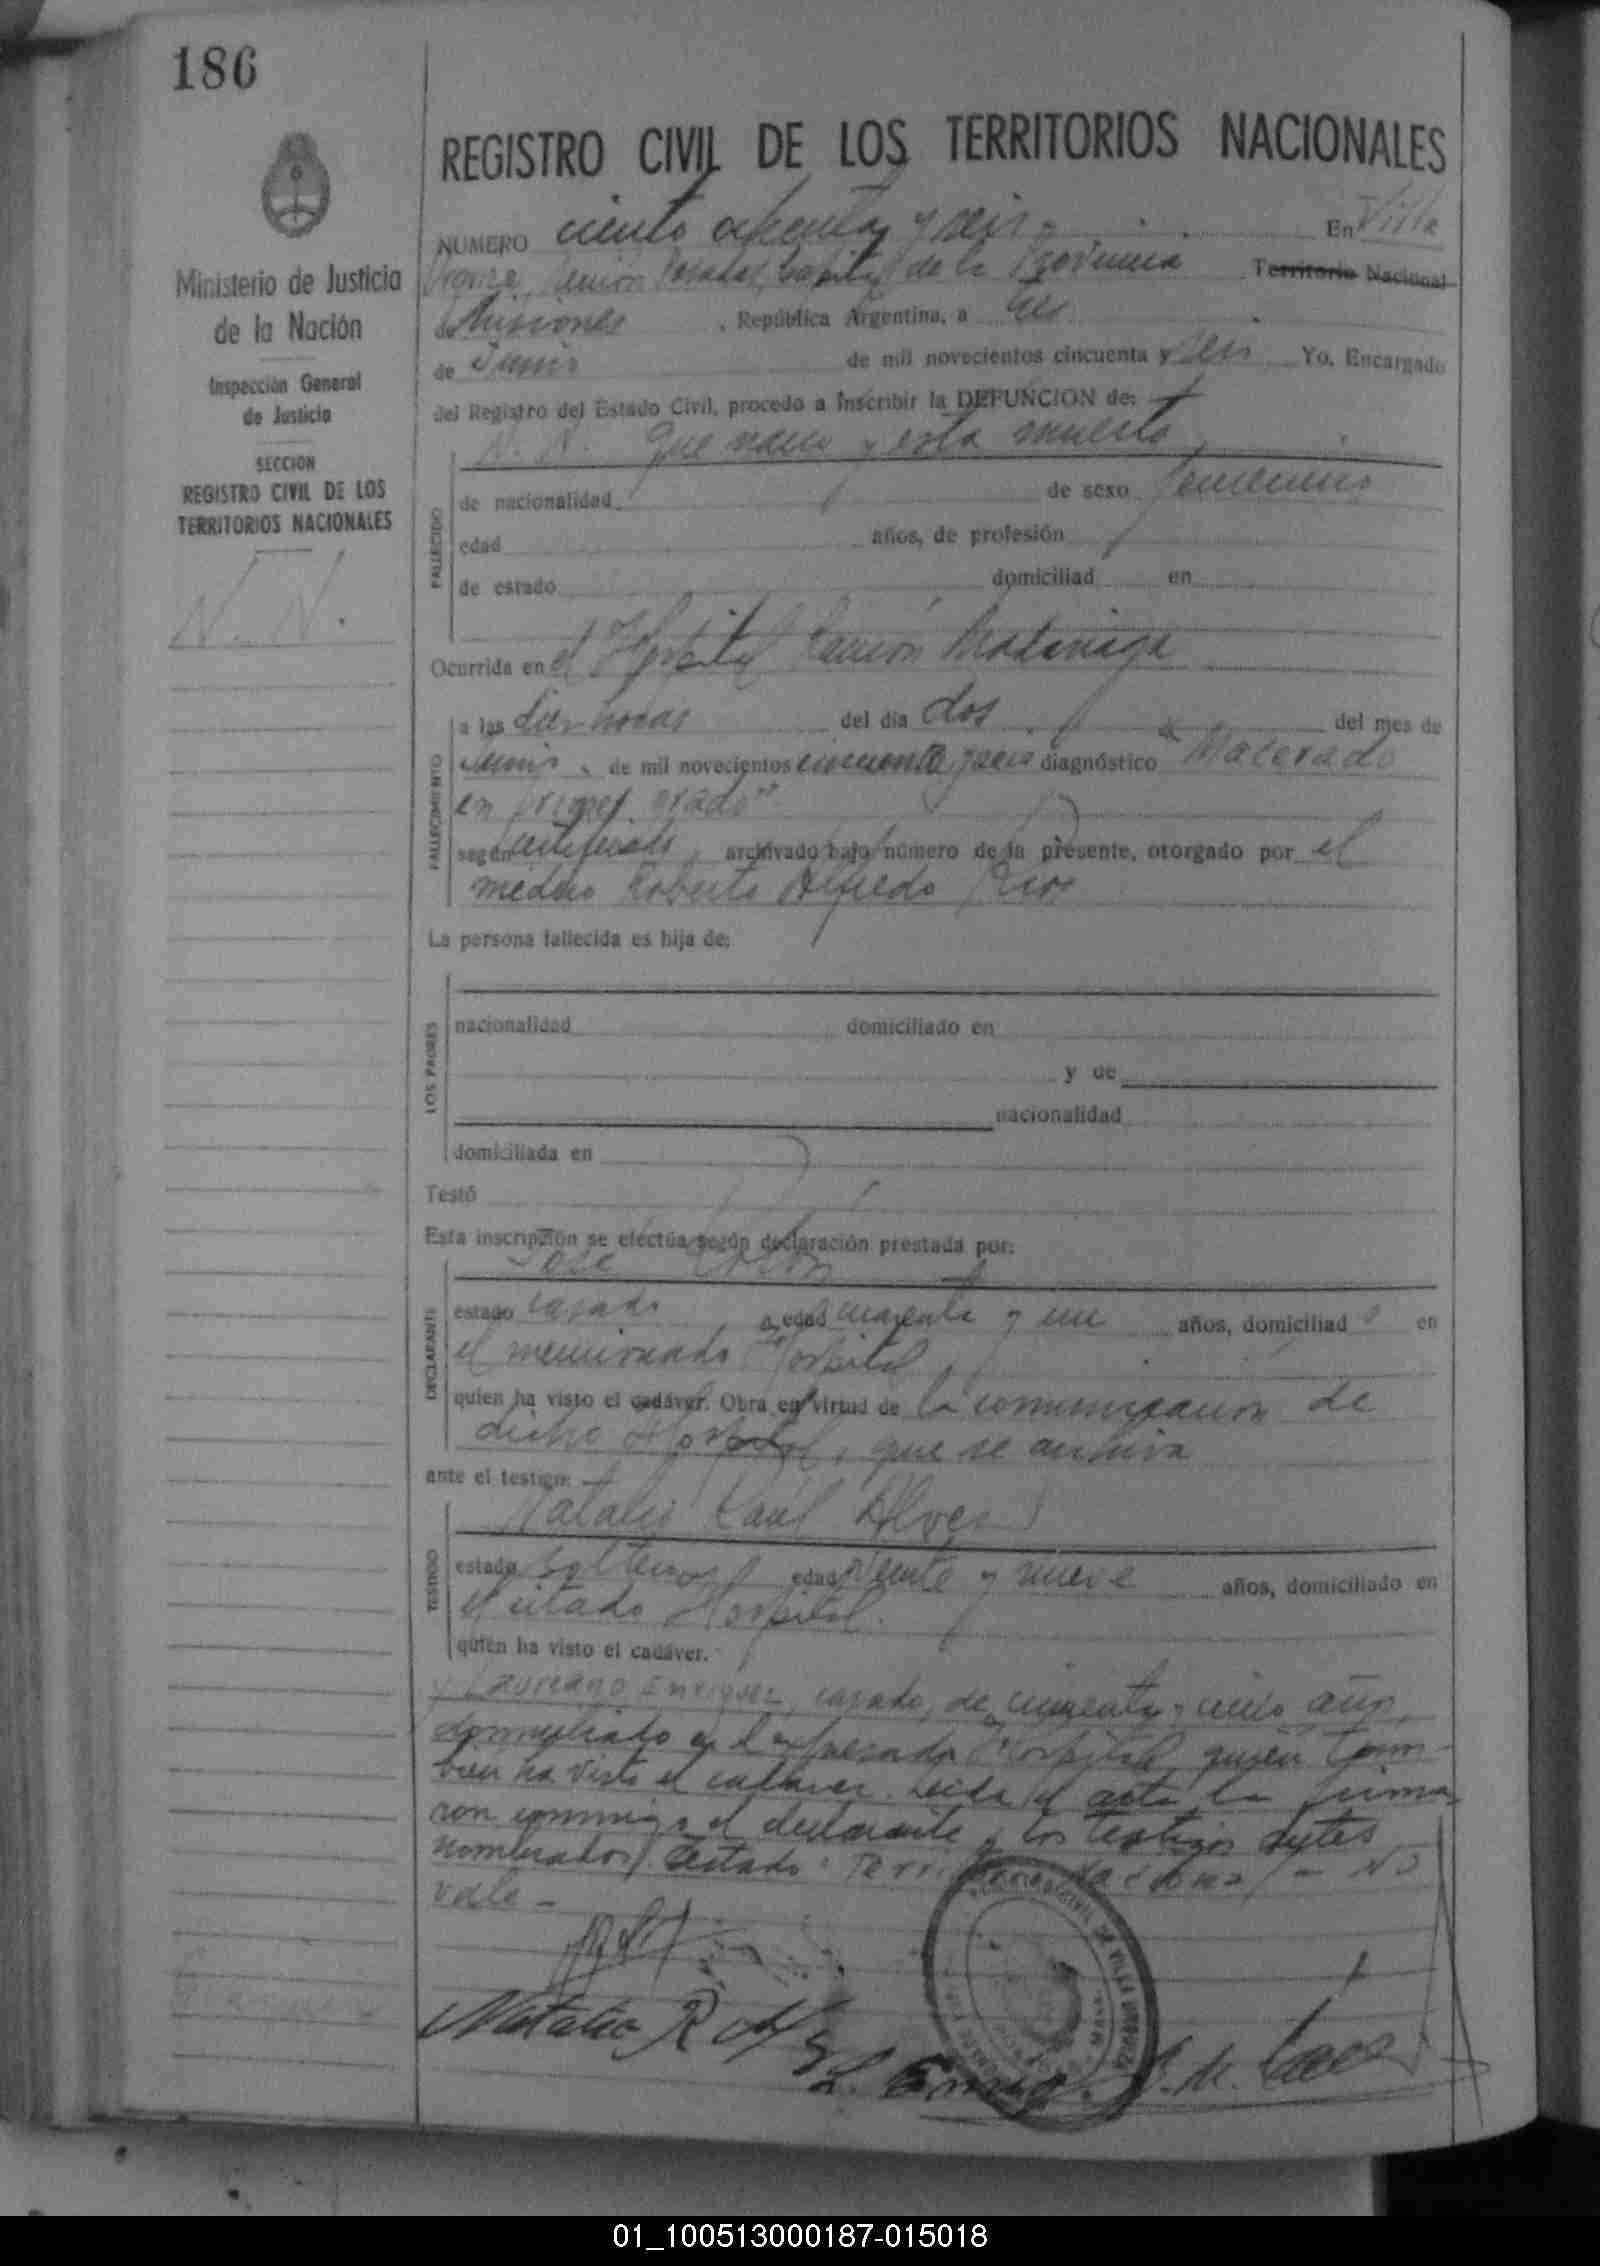 186
REGISTRO CIVIL DE LOS TERRITORIOS NACIONALES
Ministerio de Justicia
de la Nación
Inspección General
de Justicia
SECCION
REGISTRO CIVIL DE LOS
TERRITORIOS NACIONALES
N. N.
NUMERO ciento ochenta y seis En Villa
Urquiza, Posadas, Capital de la Provincia Territorio Nacional
de Misiones, República Argentina, a tres
de Junio de mil novecientos cincuenta y seis Yo, Encargado
del Registro del Estado Civil, procedo a inscribir la DEFUNCION de:
N. N. que nació y esta muerto
FALLECIDO
de nacionalidad de sexo femenino
edad años, de profesión
de estado domiciliad en
Ocurrida en el Hospital Ramón Madariaga
FALLECIMIENTO
a las horas del día dos del mes de
Junio de mil novecientos cincuenta y seis diagnóstico "Macerado
en primer grado"
según certificado, archivado bajo número de la presente, otorgado por el
médico Roberto Alfredo Rios
La persona fallecida es hija de:
LOS PADRES
nacionalidad domiciliado en
y de
nacionalidad
domiciliada en
Testó
Esta inscripción se efectúa según declaración prestada por:
José
DECLARANTE
estado casado, edad cuarenta y un años, domiciliad o en
el mencionado Hospital,
quien ha visto el cadáver. Obra en virtud de la comunicación de
dicho Hospital, que se archiva
ante el testigo:
Natalio Raúl Alves
TESTIGO
estado soltero edad veinte y nueve años, domiciliado en
el citado Hospital.
quien ha visto el cadáver.
y Laureano Enriquez, casado, de cincuenta y cinco años,
domiciliado en el expresado Hospital quien tam-
bien ha visto el cadaver. Leida el acta la firma-
ron conmigo el declarante y los testigos antes
nombrados. Testado: Territorio Nacional - No
vale -
Natalio R.
01_100513000187-015018